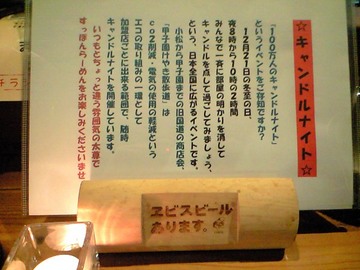 ☆キャンドルナイト☆
「100万人のキャンドルナイト」
というイベントをご存知ですか？
12月21日の冬至の日、
夜8時から10時の2時間
みんなで一斉に部屋の明かりを消して
キャンドルを点して過ごしてみましょう、
という、日本全国に広がるイベントです。
小松から甲子園までの旧国道の商店会、
「甲子園けやき散歩道」は
co2削減・電気の使用の軽減という
エコの取り組みの一環として
加盟店ごとに出来る範囲で、随時
キャンドルナイトを開催しています。
いつもとちょっと違う雰囲気の太尊で
すっぽんらーめんをお楽しみくださいませ
ヱビスビール
あります。